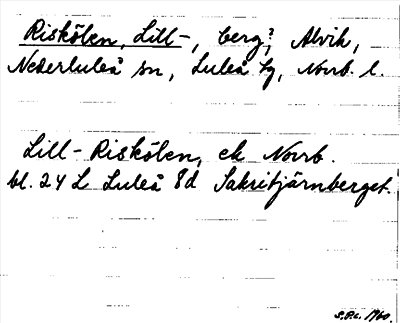 Riskölen, Lill-, berg?, Alvik,
Nederluleå sn, Luleå kg, Norrb. l.
Lill-Riskölen, ek Norrb.
bl. 24 L Luleå 8d Sakritjärnberget.
S.P.L. 1960